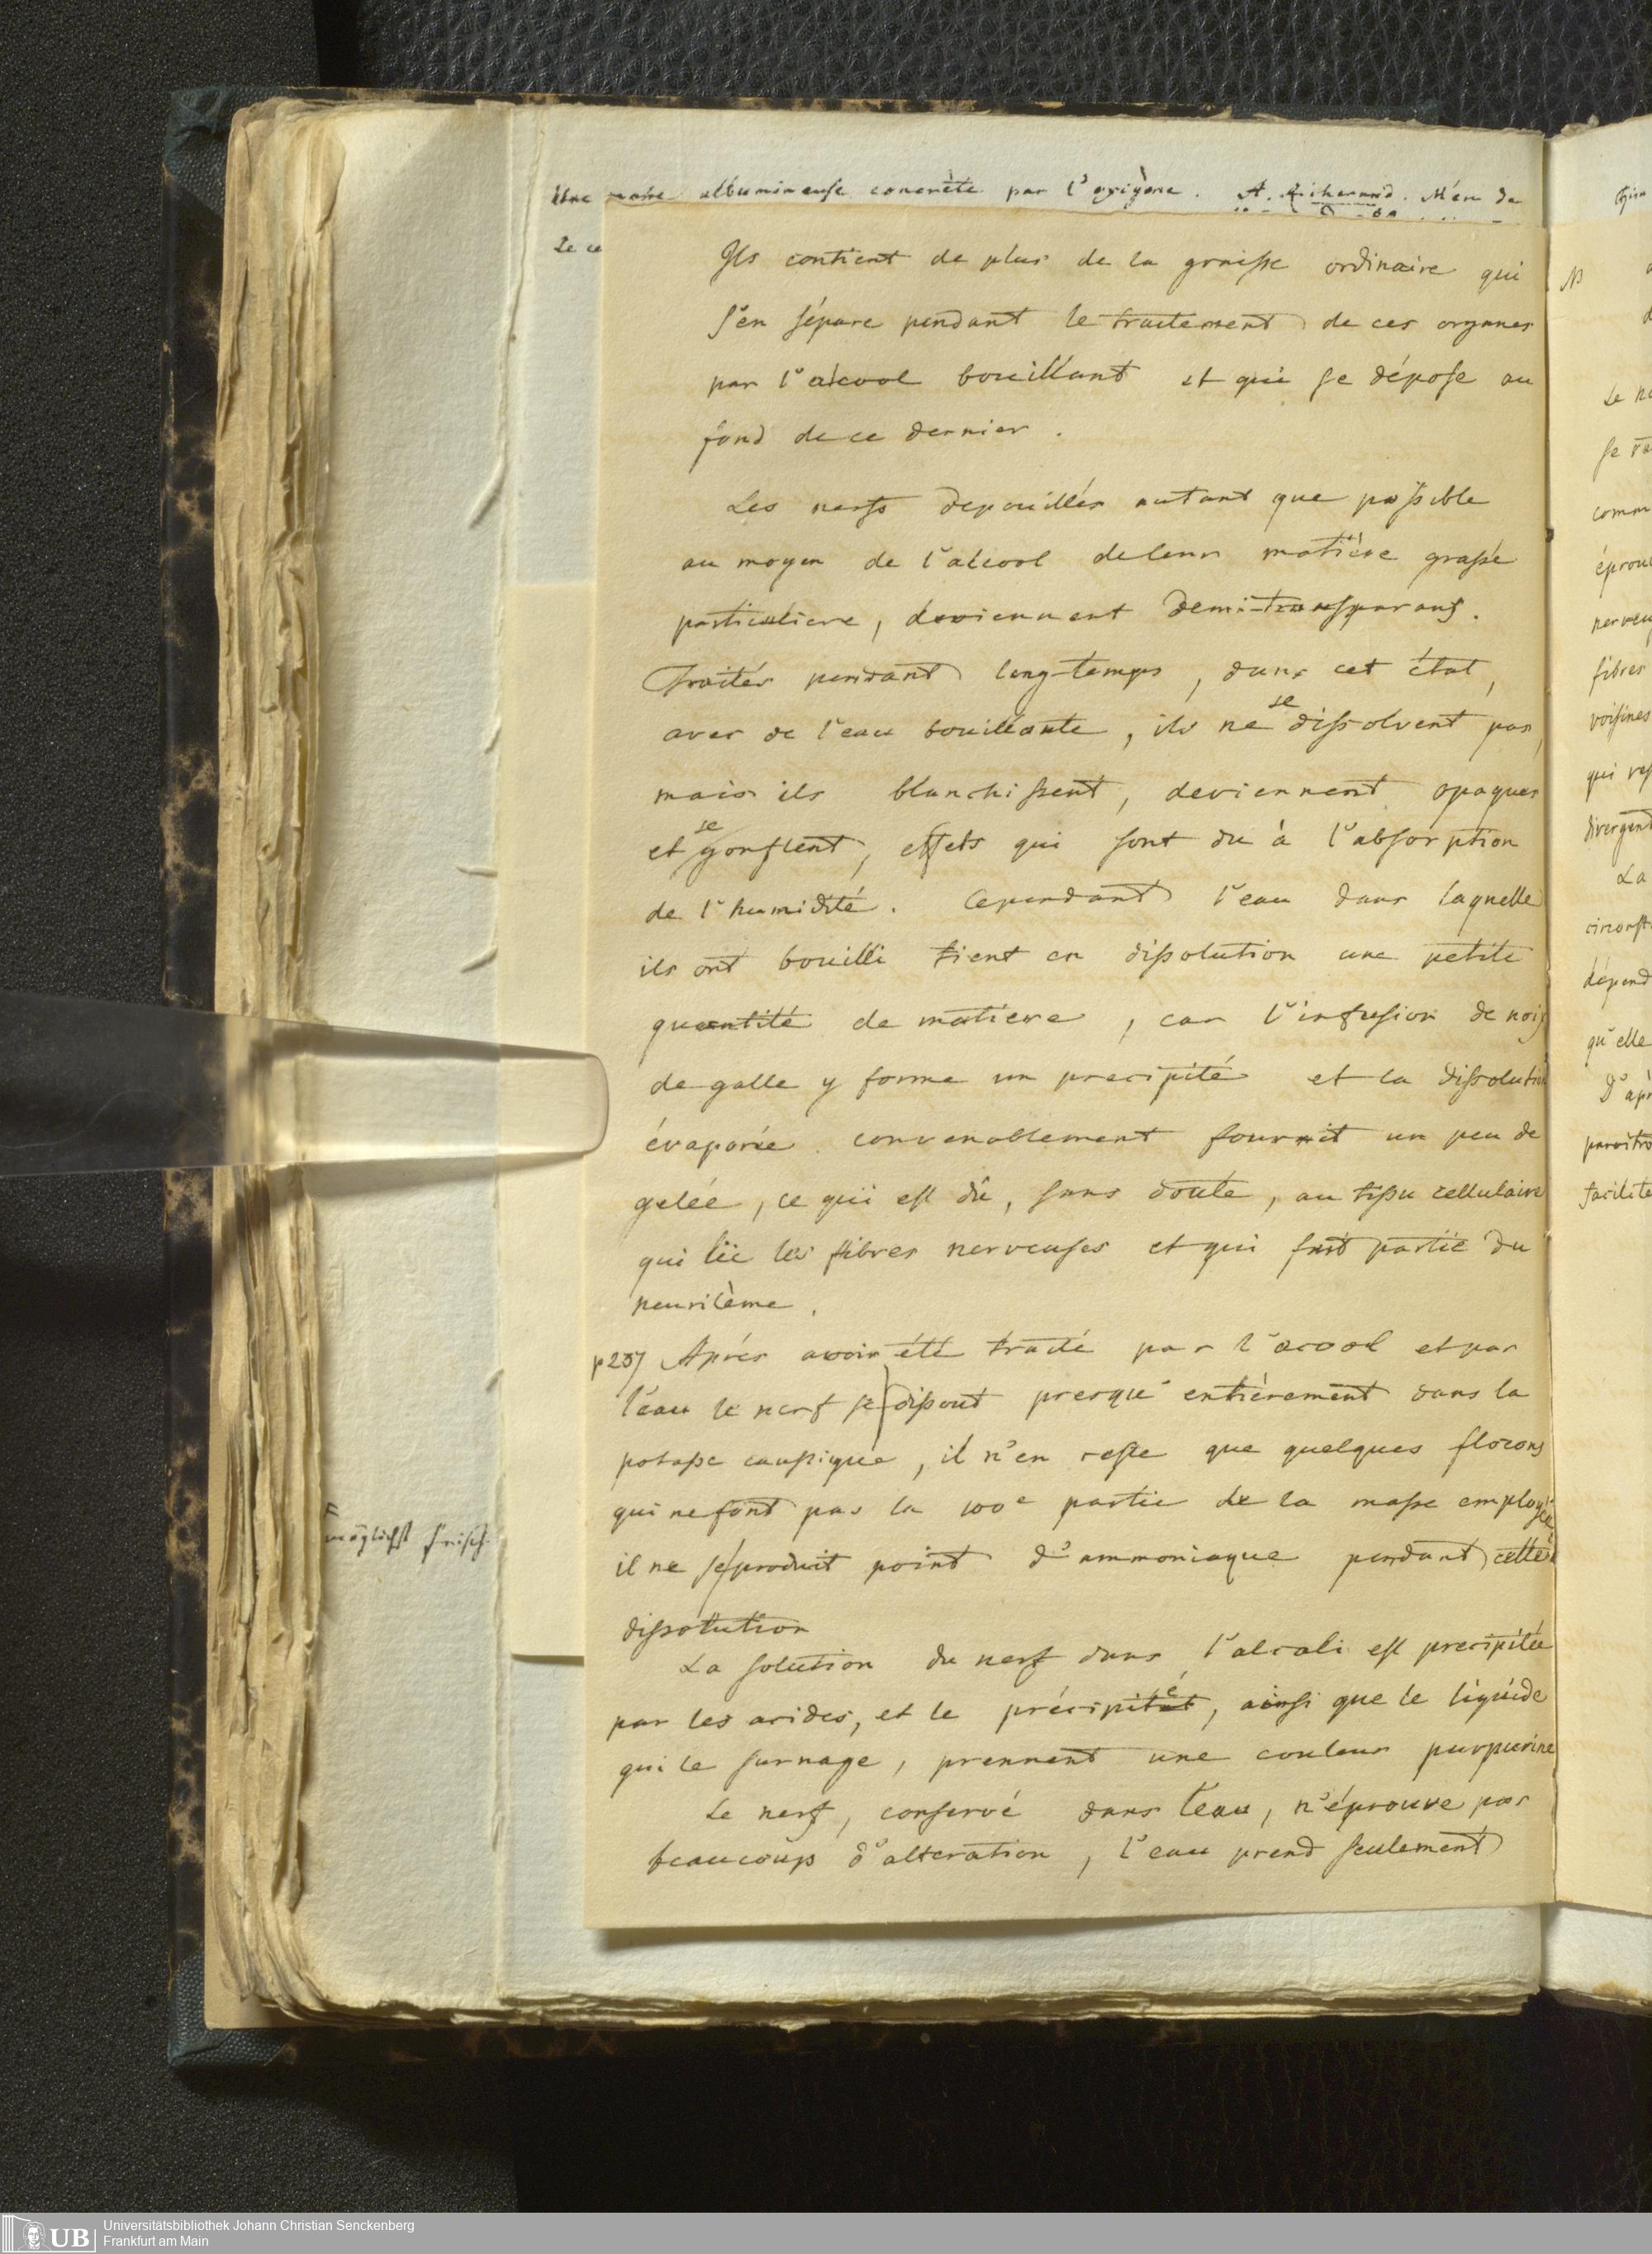 Une albumineuse concrète par l'oxigène. A. Richerand. Mém de
Le ce
Ils contient de plus de la graisse ordinaire qui
s'en sépare pendant le traitement de ces organes
par l'alcool bouillant et qui se dépose au
fond de ce dernier.
Les nerfs depouillés autant que possible
au moyen de l'alcool de leur matière grasse
particuliere, deviennent demi-transparans.
Traités pendant long-temps, dans cet état,
avec de l'eau bouillante, ils ne se dissolvent pas,
mais ils blanchissent, deviennent opaques
et se gonflent, effets qui sont du à l'absorption
de l'humidité. Cependant l'eau dans laquelle
ils ont bouilli tient en dissolution une petite
quantité de matiere, car l'infusion de noix
de galle y forme un precipité et la dissolution
évaporée convenablement fournit un peu de
gelée, ce qui est dû, sans doute, au tissu cellulaire
qui lie les fibres nerveuses et qui fait partie du
neurilème.
p 237 Après avoir été traité par l'acool et par
l'eau le nerf se dissout presque entièrement dans la
potasse caustique, il n'en reste que quelques flocons
qui ne font pas la 100e partie de la masse employée
il ne se produit point d'ammoniaque pendant cette
dissolution
La solution du nerf dans l'alcali est precipitée
par les acides, et le précipité, ainsi que le liquide
qui le surnage, prennent une couleur purpurine
Le nerf, conservé dans l'eau, n'éprouve pas
beaucoup d'alteration, l'eau prend seulement
möglichst frisch
NB
Le ne
se
comm
éprou
nerveu
fibres
voisines
qui res
divergent
La
circonst
dépend
qu'elle
D'apr
paroitro
facilite
Universitätsbibliothek Johann Christian Senckenberg
Frankfurt am Main
UB